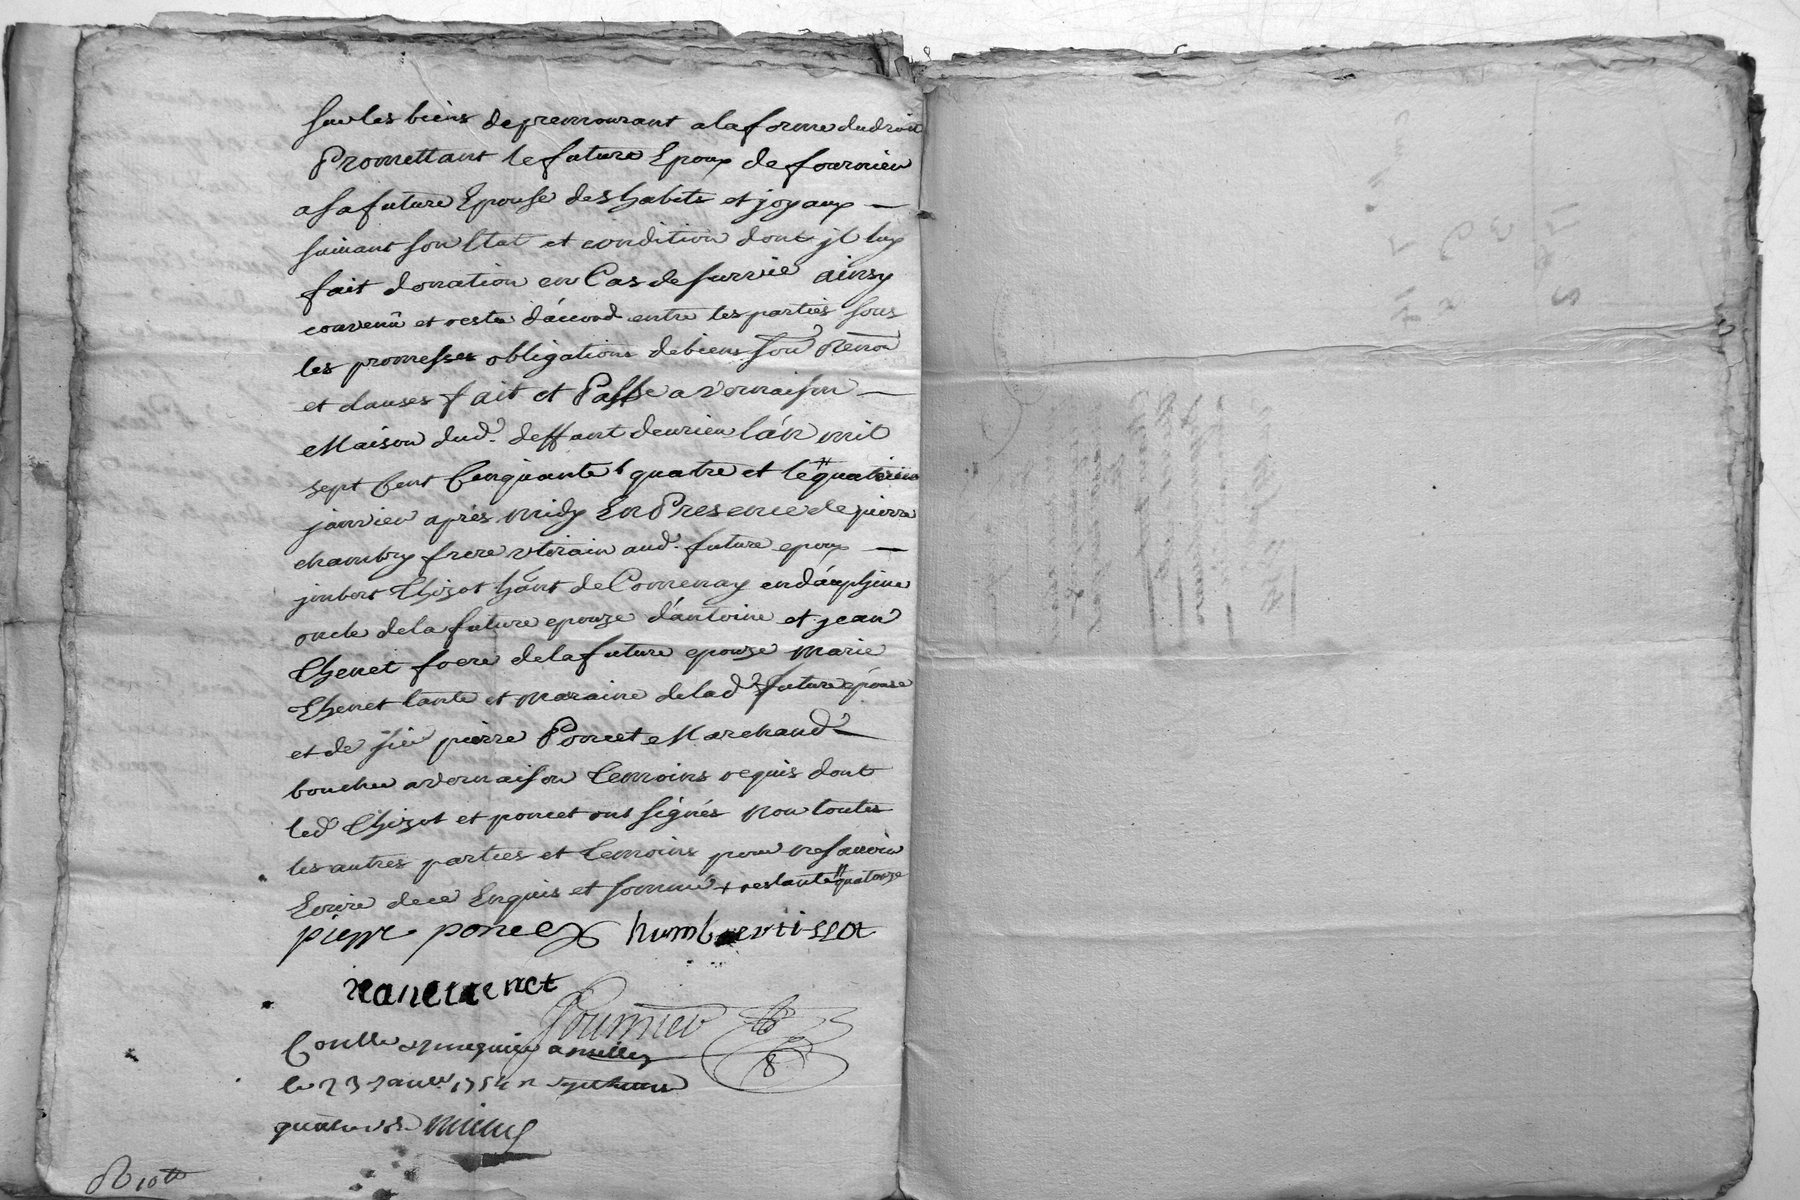 sur les biens de premourant a la forme du droit
Promettant le future Epoux de fournir
a sa future Epouse des habits et joyaux —
suivant son Etat et condition dont jl luy
fait donation en Cas de survie ainsy
convenü et resté d'accord entre les parties sous
les promesses obligations de biens renon
et clauses fait et Passé a vernaison —
Maison dud. deffant l'an mil
sept Cent Cinquante quatre et le
janvier apres midy En Presence de pierre
chambry frere uterain aud. future epoux —
jmbert Thizot hant de Comenay en dauphine
oncle de la future epouze d'antoine et jean
Thenet frere de la future epouze marie
Thenet tante et maraine de lad. future epouse
et de sie pierre Poncet Marchand —
boucher a vernaison temoins requis dont
led Thizot et poncet ont signés non toutes
les autres parties et temoins pour ne savoir
Ecrire de ce Enquis et sommé + restante quatorze
pierre poncet humbert tissot
jean tenet
Fournier
Conllé
le 23 janv. 1754
8
R 10tt